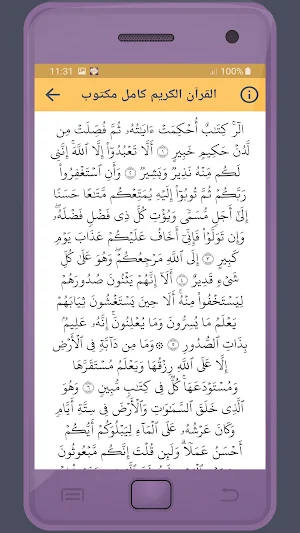 11:31 100%
القرآن الكريم كامل مكتوب
الٓرۚ كِتَٰبٌ أُحۡكِمَتۡ ءَايَٰتُهُۥ ثُمَّ فُصِّلَتۡ مِن
لَّدُنۡ حَكِيمٍ خَبِيرٍ ١ أَلَّا تَعۡبُدُوٓاْ إِلَّا ٱللَّهَۚ إِنَّنِي
لَكُم مِّنۡهُ نَذِيرٞ وَبَشِيرٞ ٢ وَأَنِ ٱسۡتَغۡفِرُواْ
رَبَّكُمۡ ثُمَّ تُوبُوٓاْ إِلَيۡهِ يُمَتِّعۡكُم مَّتَٰعًا حَسَنًا
إِلَىٰٓ أَجَلٖ مُّسَمّٗى وَيُؤۡتِ كُلَّ ذِي فَضۡلٖ فَضۡلَهُۥۖ
وَإِن تَوَلَّوۡاْ فَإِنِّيٓ أَخَافُ عَلَيۡكُمۡ عَذَابَ يَوۡمٖ
كَبِيرٍ ٣ إِلَى ٱللَّهِ مَرۡجِعُكُمۡۖ وَهُوَ عَلَىٰ كُلِّ
شَيۡءٖ قَدِيرٌ ٤ أَلَآ إِنَّهُمۡ يَثۡنُونَ صُدُورَهُمۡ
لِيَسۡتَخۡفُواْ مِنۡهُۚ أَلَا حِينَ يَسۡتَغۡشُونَ ثِيَابَهُمۡ
يَعۡلَمُ مَا يُسِرُّونَ وَمَا يُعۡلِنُونَۚ إِنَّهُۥ عَلِيمُۢ
بِذَاتِ ٱلصُّدُورِ ٥ ۞وَمَا مِن دَآبَّةٖ فِي ٱلۡأَرۡضِ
إِلَّا عَلَى ٱللَّهِ رِزۡقُهَا وَيَعۡلَمُ مُسۡتَقَرَّهَا
وَمُسۡتَوۡدَعَهَاۚ كُلّٞ فِي كِتَٰبٖ مُّبِينٖ ٦ وَهُوَ
ٱلَّذِي خَلَقَ ٱلسَّمَٰوَٰتِ وَٱلۡأَرۡضَ فِي سِتَّةِ أَيَّامٖ
وَكَانَ عَرۡشُهُۥ عَلَى ٱلۡمَآءِ لِيَبۡلُوَكُمۡ أَيُّكُمۡ
أَحۡسَنُ عَمَلٗاۗ وَلَئِن قُلۡتَ إِنَّكُم مَّبۡعُوثُونَ